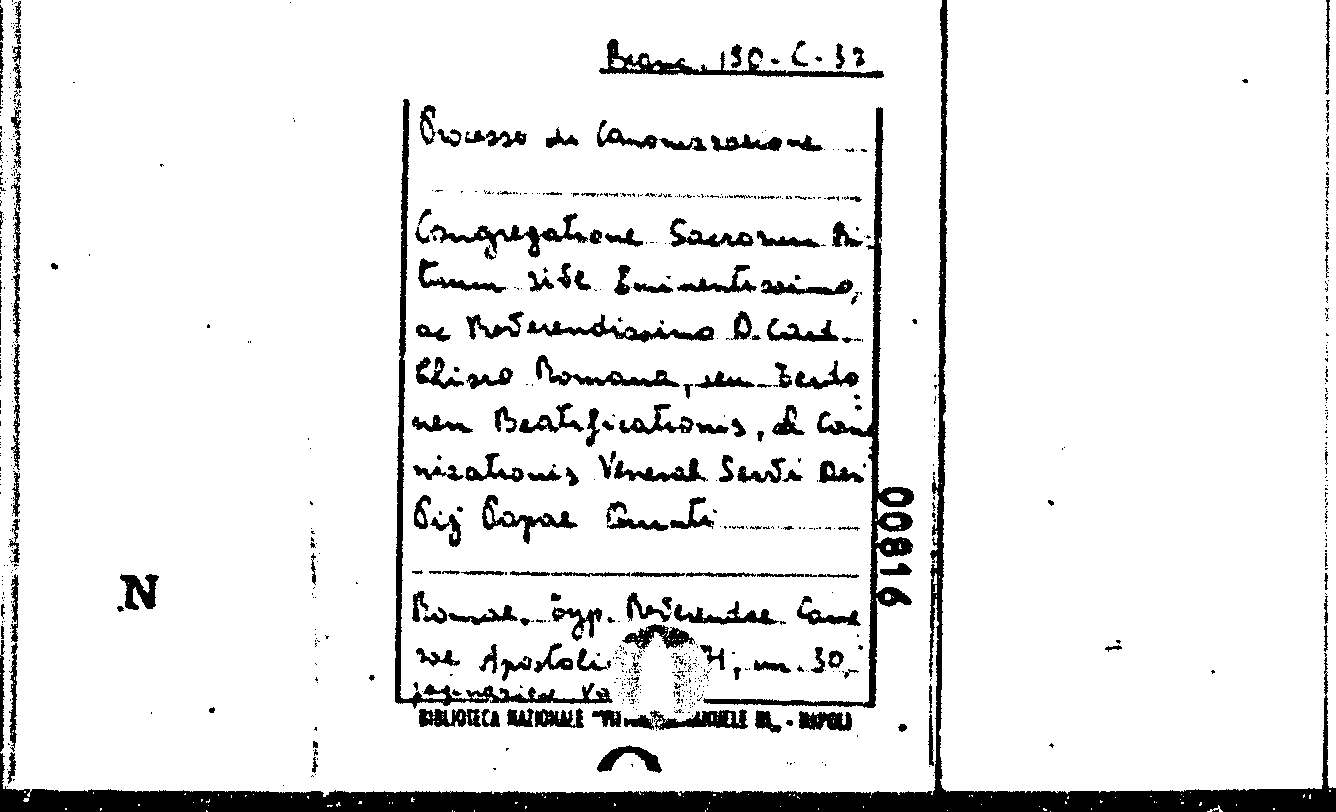 Branc. 130-C-37
Processo di Canonizzazione
Congregatione Sacrorum Ri-
tuum sive Eminentissimo,
ac Reverendissimo D. Card.
Chisio Romana, seu
nem Beatificationis, et Cano
nizationis Venerab Servi Dei
Pij Papae Quinti
00816
N
Romae. Typ. Reverendae Came
rae Apostoli 71, in 30,
BIBLIOTECA NAZIONALE "VIT ANUELE III" - NAPOLI